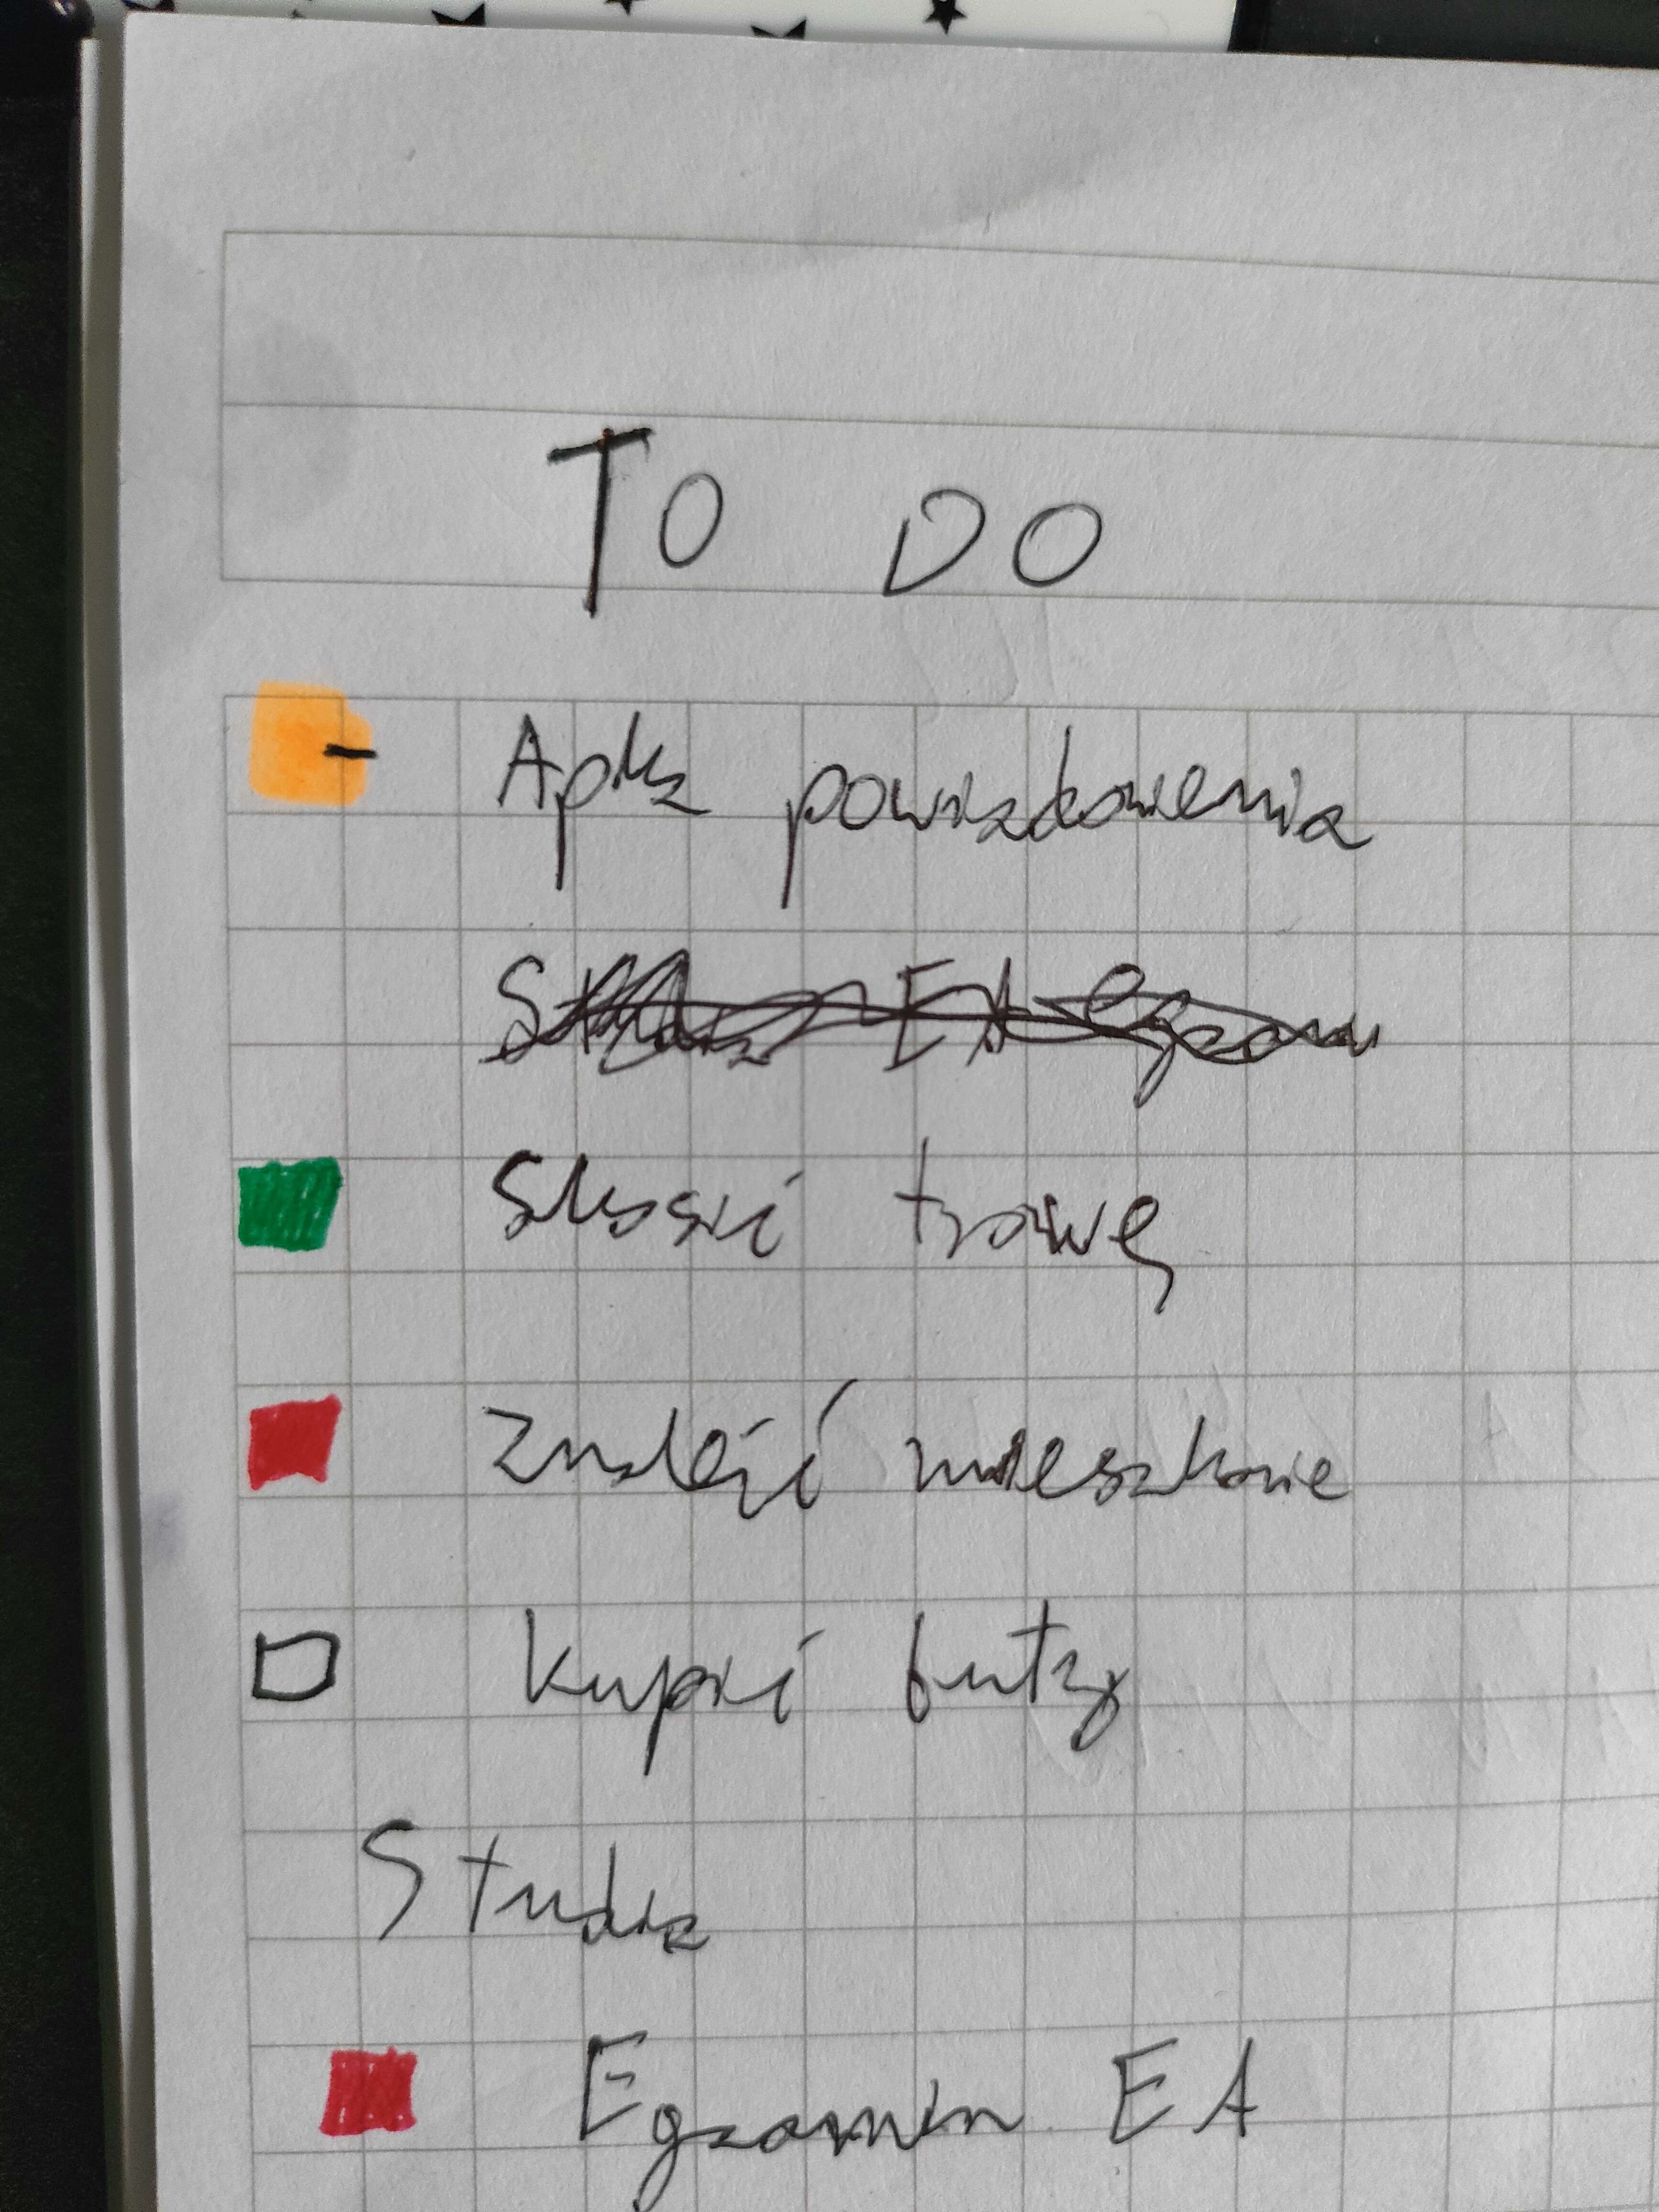 TO DO
Apka powiadomienia
EA egzam
Skosić trawę
Znaleźć mieszkanie
Kupić buty
Studia
Egzamin EA